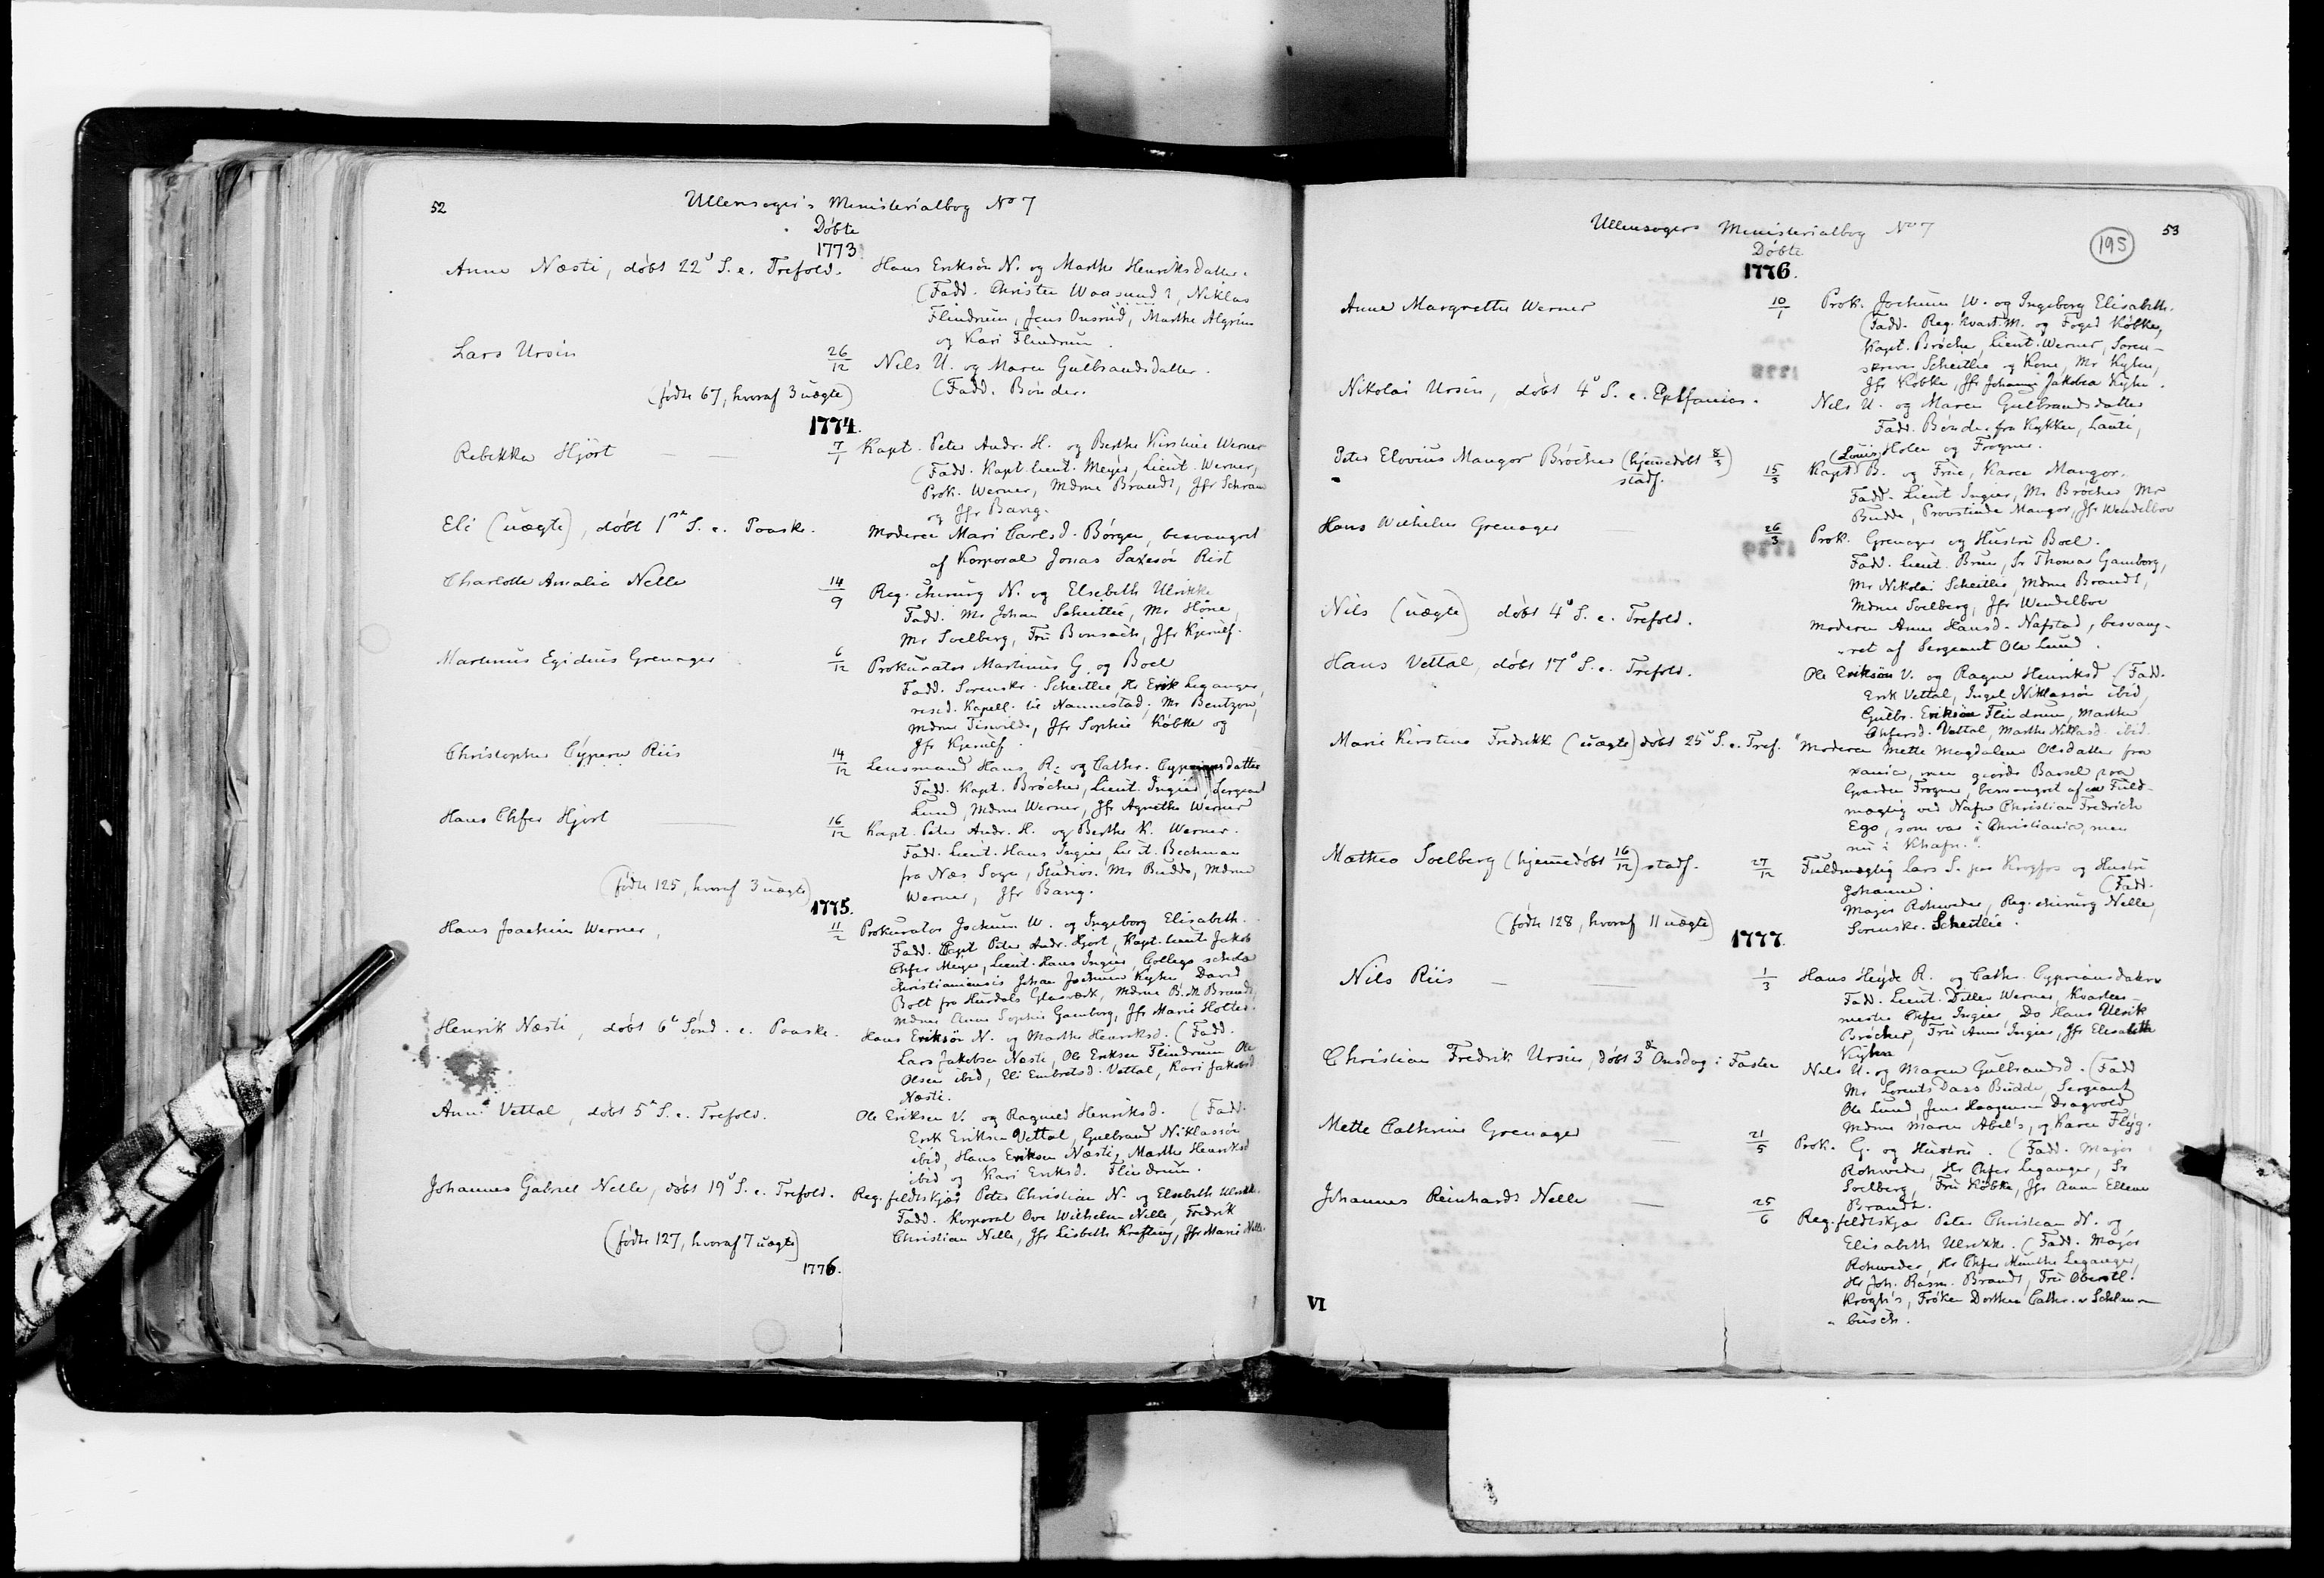 52
Ullensager's Ministerialbog No 7
Døbte
1773
Anne Næsti, døbt 22d S. e. Trefold.
Hans Eriksön N. og Marthe Henriksdatter.
(Fadd. Christen Waasund?, Niklas
Flindrum, Jens Onsrud, Marthe Algrim
og Kari Flindrum.
Lars Ursin
26/12 Nils U. og Maren Gulbrandsdatter.
(Fadd. Bönder.
(födte 67, hvoraf 3 uægte)
1774.
Rebekka Hjort
7/1 Kapt. Peter Andr. H. og Berthe Kirstine Werner
(Fadd. Kapt. Lieut. Meyer, Lieut. Werner,
Prok. Werner, Mdme Brandt, Jfr Schram
og Jfr Bang.
Eli (uægte), döbt 1ste S. e. Paaske.
Moderen Mari Carlsd. Börgen, besvangret
af Korporal Jonas Saxesön Rist
Charlotte Amalia Nelle
14/9 Reg. chirurg N. og Elsebeth Ulrikke
Fadd. Mr Johan Scheitlie, Mr Höne,
Mr Soelberg, Fru Bonsach, Jfr Kjerulf.
Martinus Egidius Grenager
6/12 Prokurator Martinus G. og Boel
Fadd. Sorenskr. Scheitlie, Hr Erik Leganger,
resid. Kapell. til Nannestad, Mr Bentzon,
Mdme Tisvilde, Jfr Sophie Köbke og
Jfr Kjerulf.
Christopher Cypern Riis
14/12 Lensmand Hans R. og Cathr. Cypriansdatter
Fadd. Kapt. Bröcher, Lieut. Ingier, Sergeant
Lund, Mdme Werner, Jfr Agnethe Werner
Hans Chfer Hjort
16/12 Kapt. Peter Andr. H. og Berthe K. Werner.
Fadd. Lieut. Hans Ingier, Lieut. Bechman
fra Næs Sogn, Studios. Mr Budde, Mdme
Werner, Jfr Bang.
(födte 125, hvoraf 3 uægte)
1775.
Hans Joachim Werner,
11/2 Prokurator Jochum W. og Ingeborg Elisabeth.
Fadd. Capt Peter Andr. Hjort, Kapt. Lieut. Jakob
Chfer Meyer, Lieut. Hans Ingier, Collega scholæ
christianiensis Johan Jochum Kyhn, David
Bolt fra Hurdals Glasværk, Mdme B. M. Brandt,
Mdme Anne Sophie Gamborg, Jfr Marie Holter.
Henrik Næsti, döbt 6te Sönd. e. Paaske.
Hans Eriksön N. og Marthe Henriksd. (Fadd.
Lars Jakobsen Næsti, Ole Eriksen Flindrum, Ole
Olsen ibid, Eli Embretsd. Vettal, Kari Jakobsd
Næsti.
Anne Vettal, döbt 5te S. e. Trefold.
Ole Eriksen V. og Ragnild Henriksd. (Fadd.
Erik Eriksen Vettal, Gulbrand Niklassön
ibid, Hans Eriksen Næsti, Marthe Henriksd
ibid og Kari Eriksd. Flindrum.
Johannes Gabriel Nelle, döbt 19d S. e. Trefold.
Reg. feldtskjær Peter Christian N. og Elsebeth Ulrikke.
Fadd. Korporal Ove Wilhelm Nelle, Fredrik
Christian Nelle, Jfr Lisbeth Krefting, Jfr Marie Nelle.
(födte 127, hvoraf 7 uægte)
1776.
53
Ullensagers Ministerialbog No 7
195
Døbte
1776.
Anne Margrethe Werner
10/1 Prok. Jochum W. og Ingeborg Elisabeth.
(Fadd. Reg. Kvart. M. og Foged Köbke,
Kapt. Bröcher, Lieut. Werner, Soren-
skriver Scheitlie og Kone, Mr Kyhn,
Jfr Köbke, Jfr Johanne Jakobea Kyhn.
Nikolai Ursin, döbt 4d S. e. Epifanias.
Nils U. og Maren Gulbrandsdatter
Fadd. Bönder fra Kykken, Lauti,
(Louis) Holen og Frogner.
Peter Elovius Mangor Bröcher (hjemmedöbt 8/5)
stadf.
15/5 Kapt B. og Frue, Karen Mangor.
Fadd. Lieut Ingier, Mr Bröcher, Mr
Budde, Provstinde Mangor, Jfr Wendelbov
Hans Wilhelm Grenager
26/3 Prok. Grenager og Hustru Boel.
Fadd. Lieut. Brun, Sr Thomas Gamborg,
Mr Nikolai Scheitlie, Mdme Brandt,
Mdme Soelberg, Jfr Wendelbov
Nils (uægte) döbt 4d S. e. Trefold.
Moderen Anne Hansd. Nafstad, besvang-
ret af Sergeant Ole Lund.
Hans Vettal, döbt 17d S. e. Trefold.
Ole Eriksön V. og Ragne Henriksd. (Fadd.
Erik Vettal, Ingel Niklassön ibid,
Gulbr. Eriksön Flindrum, Marthe
Chfersd. Vettal, Marthe Niklasd. ibid.
Marie Kirstine Fredrikke (uægte) döbt 25d S. e. Tref.
"Moderen Mette Magdalene Olsdatter fra
xania, men giorde Barsel paa
Gaarden Frogner, besvangret af en Fuld-
mægtig ved Nafn Christian Fredrich
Ege, som var i Christiania, men
nu i Khafn."
Mathea Soelberg (hjemmedöbt 16/12) stadf.
27/12 Fuldmægtig Lars S. paa Krogfos og Hustru
Johanne. (Fadd.
Major Rohweder, Reg. chirurg Nelle,
Sorenskr. Scheitlie.
(födte 128, hvoraf 11 uægte)
1777.
Nils Riis
1/3 Hans Heyde R. og Cathr. Cypriansdatter
Fadd. Lieut. Ditlev Werner, Kvarteer-
mester Chfer Ingier, Do Hans Ulrik
Bröcher, Fru Anne Ingier, Jfr Elisabeth
Kyhn
Christian Fredrik Ursin, döbt 3die Onsdag i Fasten
Nils U. og Maren Gulbrandsd. (Fadd
Mr Lorents Dass Budde, Sergeant
Ole Lund, Jens Haagensen Dragvold
Mdme Maren Abel's, og Karen Flyg.
Mette Cathrine Grenager
21/5 Prok. G. og Hustru. (Fadd. Major
Rohweder, Hr Chfer Leganger, Sr
Soelberg, Fru Köbke, Jfr Anne Ellene
Brandt.
Johannes Reinhardt Nelle
25/6 Reg. feldtskjær Peter Christian N. og
Elisabeth Ulrikke. (Fadd. Major
Rohweder, Hr Chfer Munthe Leganger,
Hr Joh. Rasm. Brandt, Fru Oberstl.
Krogh's, Fröken Dorthea Cathr. v Schlan-
busch.
VI